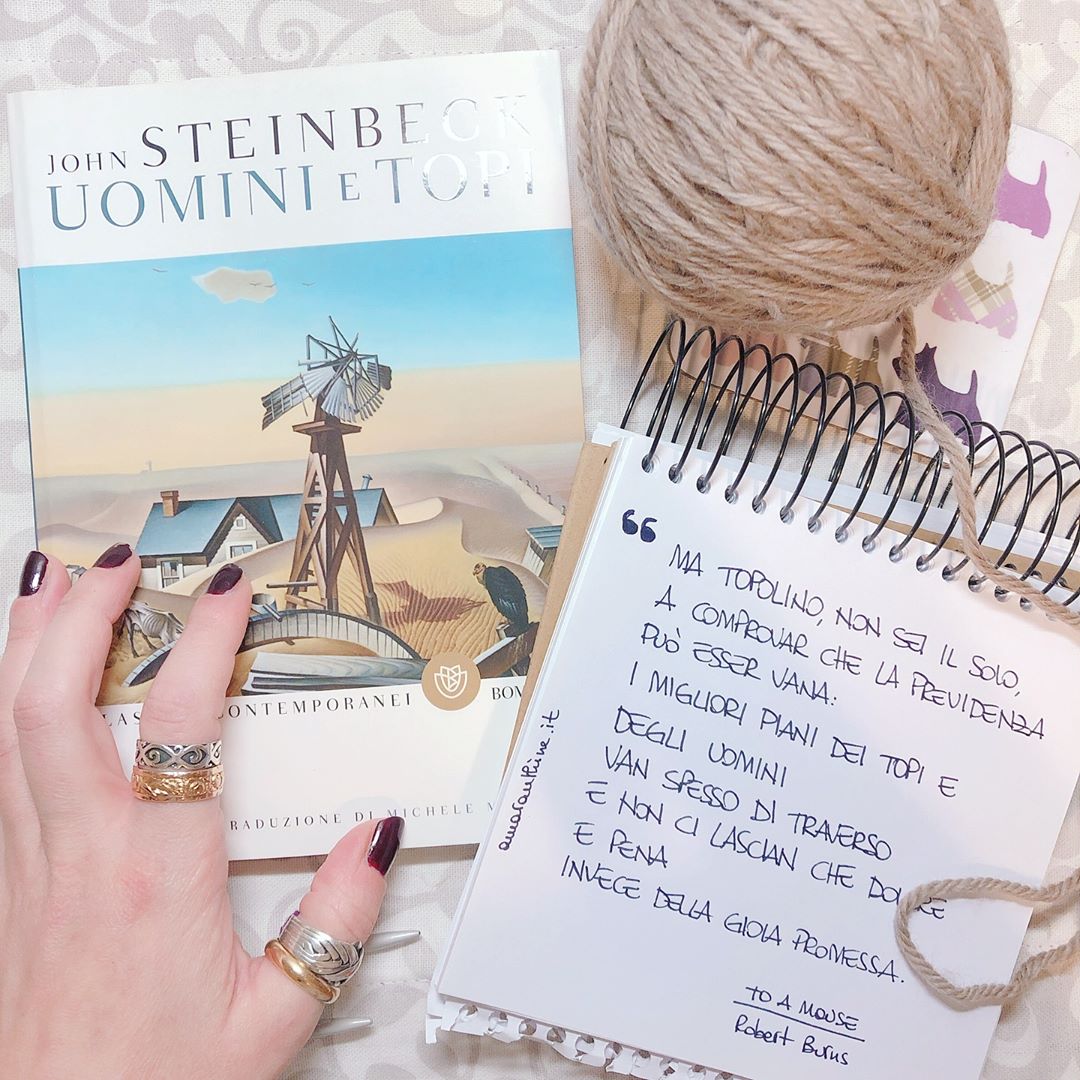 JOHN STEINBECK
UOMINI E TOPI
CONTEMPORANEI
TRADUZIONE DI MICHELE
“
MA TOPOLINO, NON SEI IL SOLO,
A COMPROVAR CHE LA PREVIDENZA
PUÒ ESSER VANA:
I MIGLIORI PIANI DEI TOPI E
DEGLI UOMINI
VAN SPESSO DI TRAVERSO
E NON CI LASCIAN CHE DOLORE
E PENA
INVECE DELLA GIOIA PROMESSA.
TO A MOUSE
Robert Burns
amaranthine.it